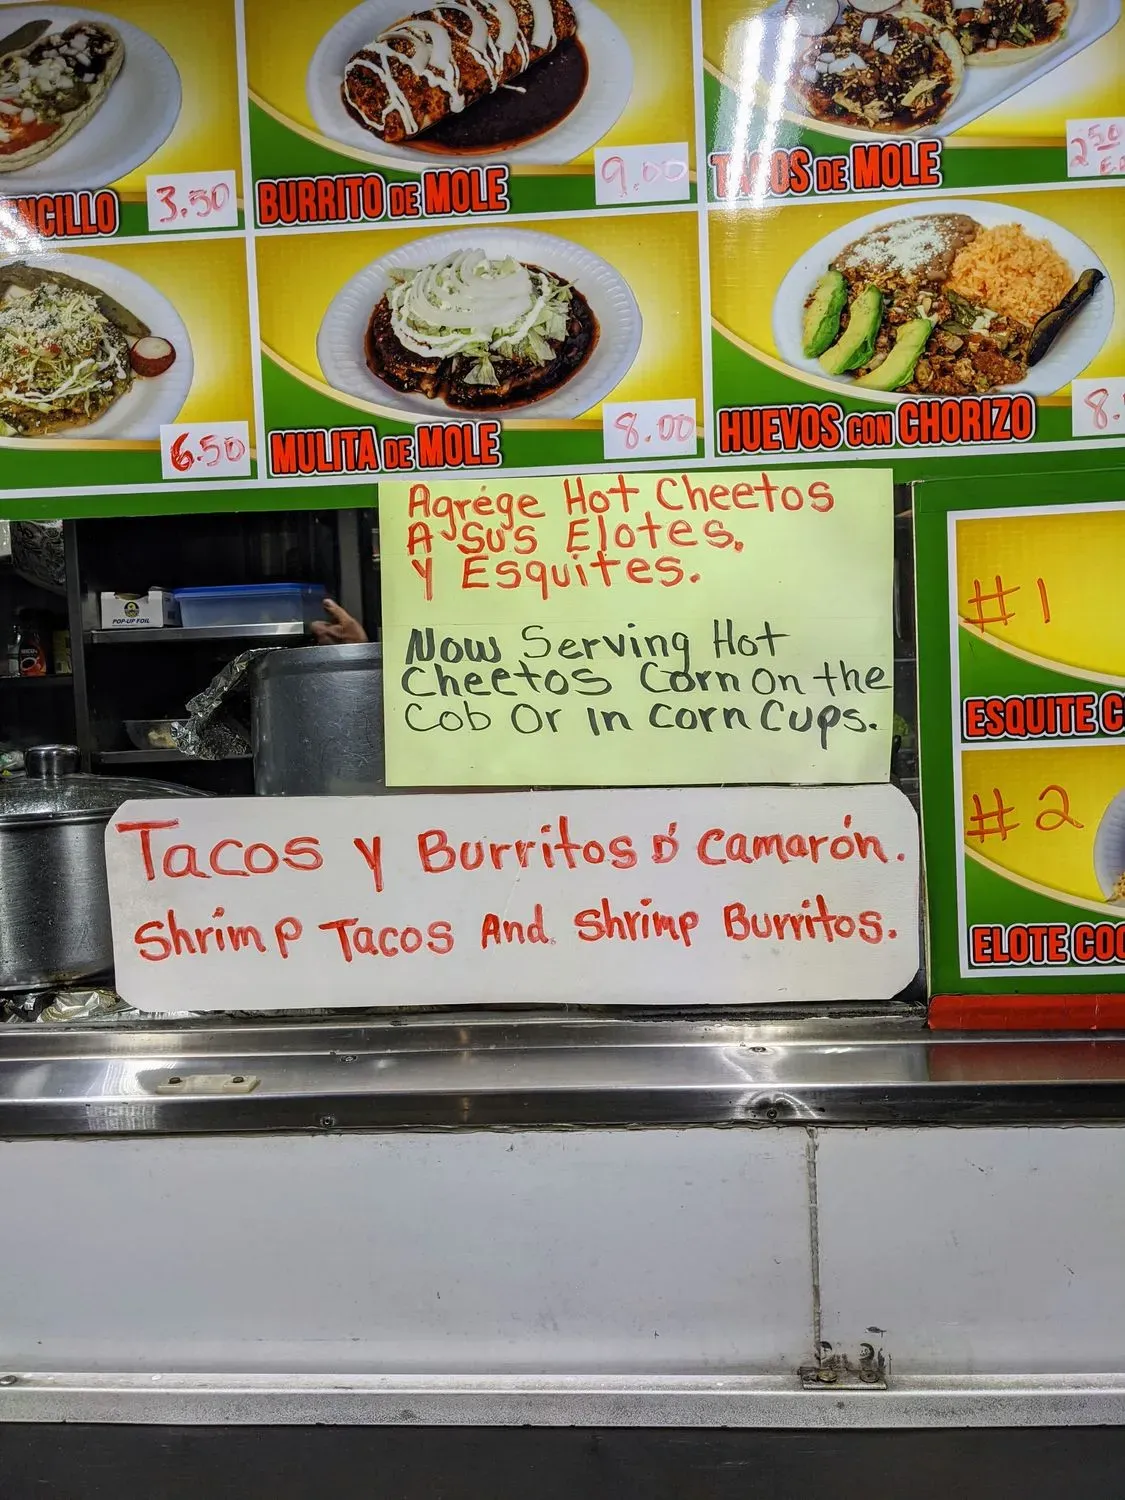 3.50
BURRITO DE MOLE
9.00
TACOS DE MOLE
2 50
6.50
MULITA DE MOLE
8.00
HUEVOS CON CHORIZO
8.
Agrége Hot Cheetos
A Sus Elotes.
Y Esquites.
Now Serving Hot
Cheetos Corn On the
Cob Or In Corn Cups.
POP-UP FOIL
#1
ESQUITE
#2
ELOTE
Tacos Y Burritos D' Camarón.
Shrimp Tacos And Shrimp Burritos.